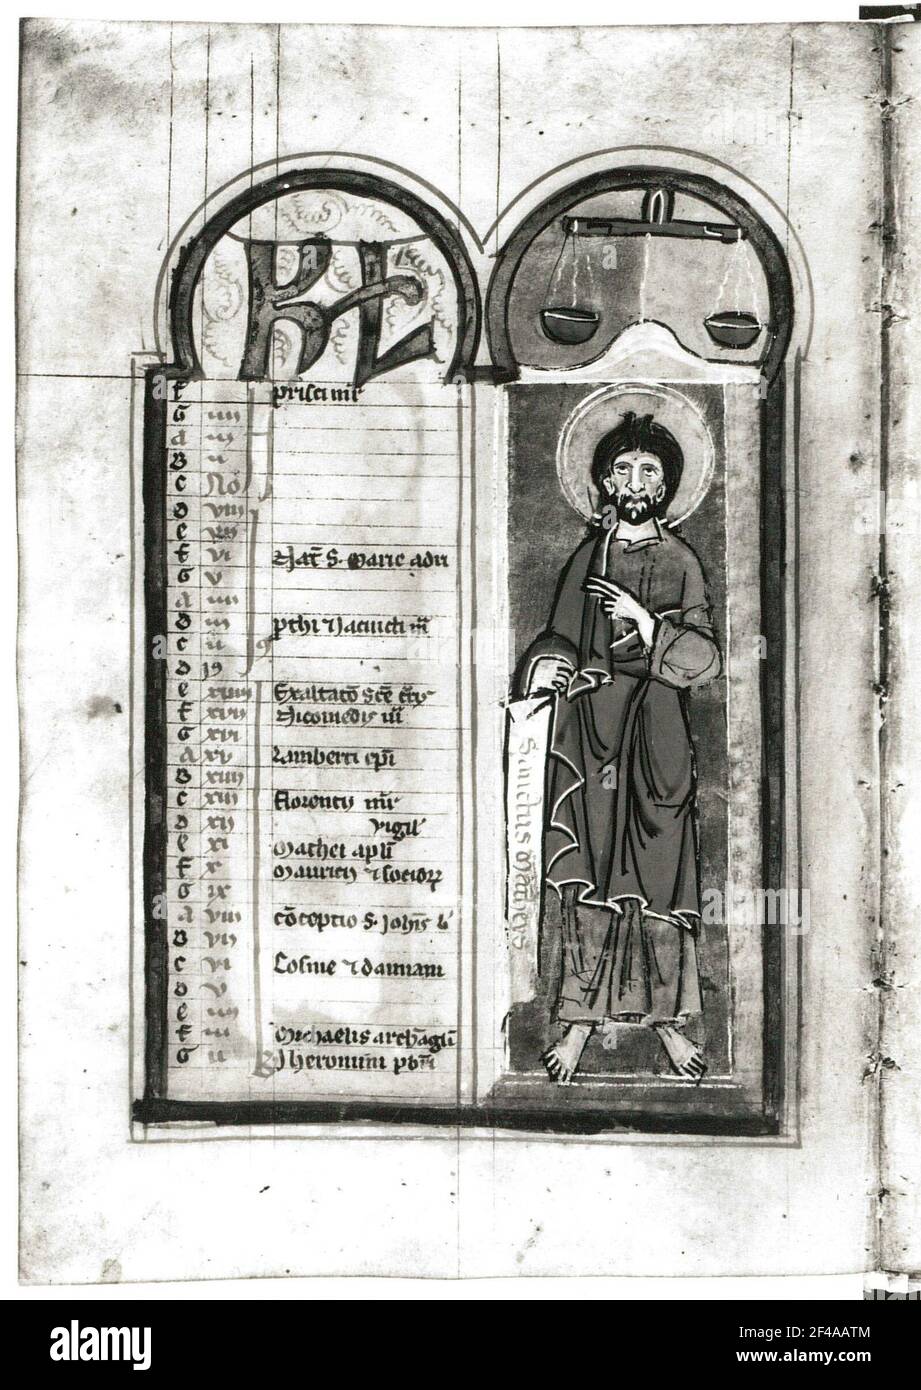 KL
f prisci mr̄
G iiii
a iii
B ii
c No
d viii
e vii
f vi Nat̄ S. Marie
G v
a iiii
B iii prothi et iacincti m̄
c ii
d
e xviii Exaltatō sc̄e
f xvii Nicomedis m̄r
G xvi
a xv Lamberti ep̄i
B xiiii
c xiii
d xii vigil
e xi Mathei apl̄i
f x Mauricii et socior
G ix
a viii cōceptio S. Joh̄is
B vii
c vi Cosme et damiani
d v
e iiii
f iii Michaelis arch̄agli
G ii Iheronimi pbr̄i
Sanctus
alamy
Image ID: 2F4AATM
www.alamy.com